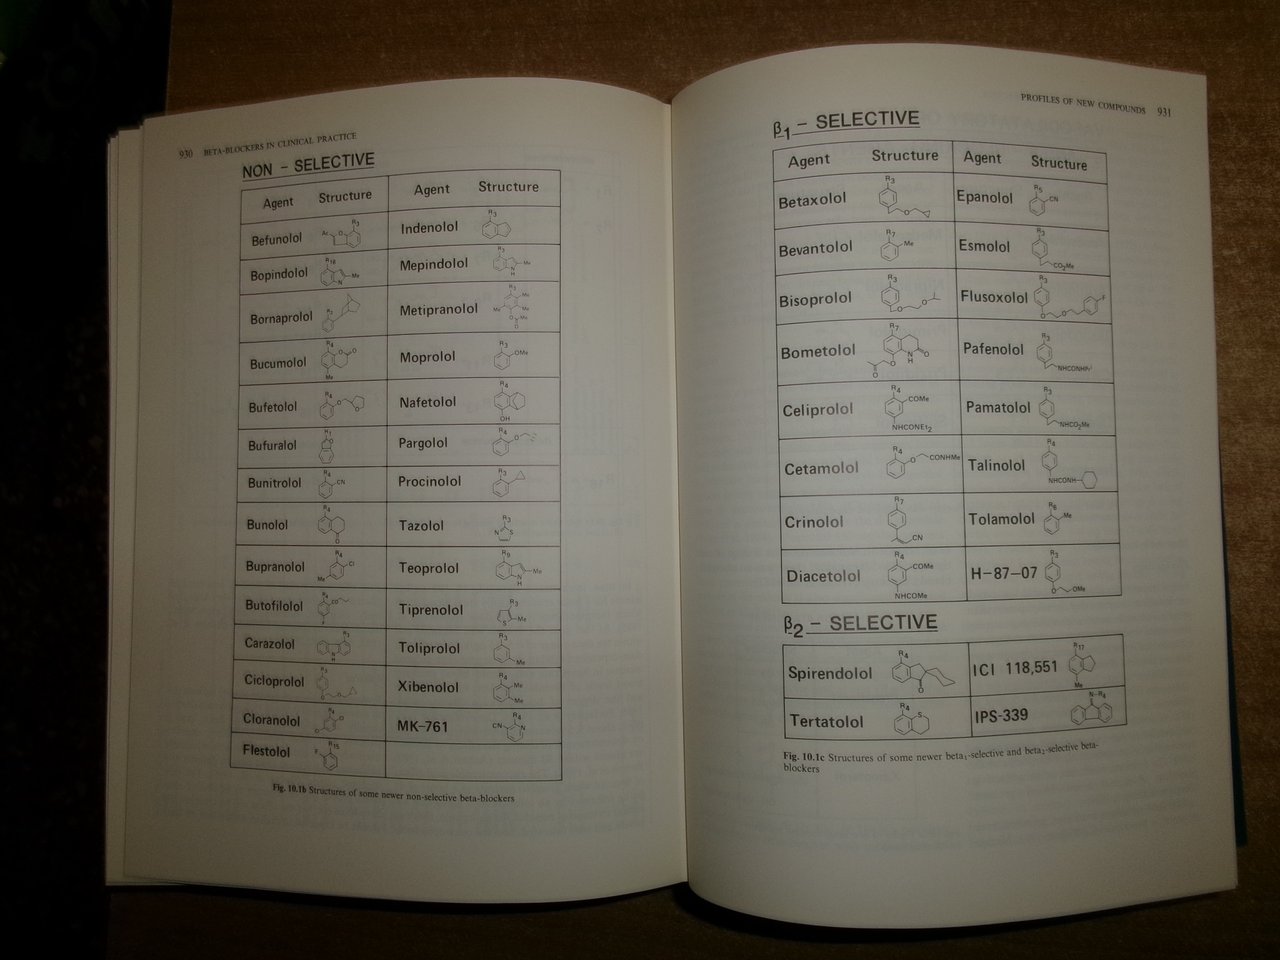 930 BETA-BLOCKERS IN CLINICAL PRACTICE
NON - SELECTIVE
Agent Structure Agent Structure
Befunolol Ac R3 Indenolol R3
Bopindolol R18 Me N Mepindolol R3 Me N H
Bornaprolol R3 Metipranolol R3 Me Me Me O Me O
Bucumolol R4 O O Me Moprolol R3 OMe
Bufetolol R4 O O Nafetolol R4 OH
Bufuralol Pargolol R4 O
Bunitrolol R4 CN Procinolol R3
Bunolol R4 O Tazolol R3 N S
Bupranolol R4 Cl Me Teoprolol R9 Me N H
Butofilolol R4 F Tiprenolol R3 S Me
Carazolol R3 N H Toliprolol R3 Me
Cicloprolol R3 O O Xibenolol R4 Me Me
Cloranolol R4 Cl Cl MK-761 CN R4 N
Flestolol R15 F
Fig. 10.1b Structures of some newer non-selective beta-blockers
PROFILES OF NEW COMPOUNDS 931
β1 - SELECTIVE
Agent Structure Agent Structure
Betaxolol R3 O Epanolol R5 CN
Bevantolol R7 Me Esmolol R3 CO2Me
Bisoprolol R3 O O Flusoxolol R3 O O F
Bometolol R7 N H O O O Pafenolol R3 NHCONHPri
Celiprolol R4 COMe NHCONEt2 Pamatolol R3 NHCO2Me
Cetamolol R4 O CONHMe Talinolol R4 NHCONH
Crinolol R7 CN Tolamolol R6 Me
Diacetolol R4 COMe NHCOMe H-87-07 R3 O OMe
β2 - SELECTIVE
Spirendolol R4 O ICI 118,551 R17 Me
Tertatolol R4 S IPS-339 N-R4
Fig. 10.1c Structures of some newer beta1-selective and beta2-selective beta-
blockers